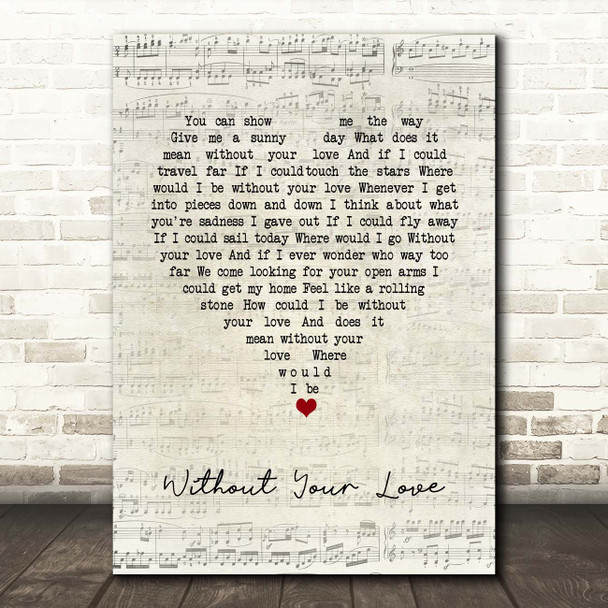 You can show me the way
Give me a sunny day What does it
mean without your love And if I could
travel far If I could touch the stars Where
would I be without your love Whenever I get
into pieces down and down I think about what
you're sadness I gave out If I could fly away
If I could sail today Where would I go Without
your love And if I ever wonder who way too
far We come looking for your open arms I
could get my home Feel like a rolling
stone How could I be without
your love And does it
mean without your
love Where
would
I be
Without Your Love